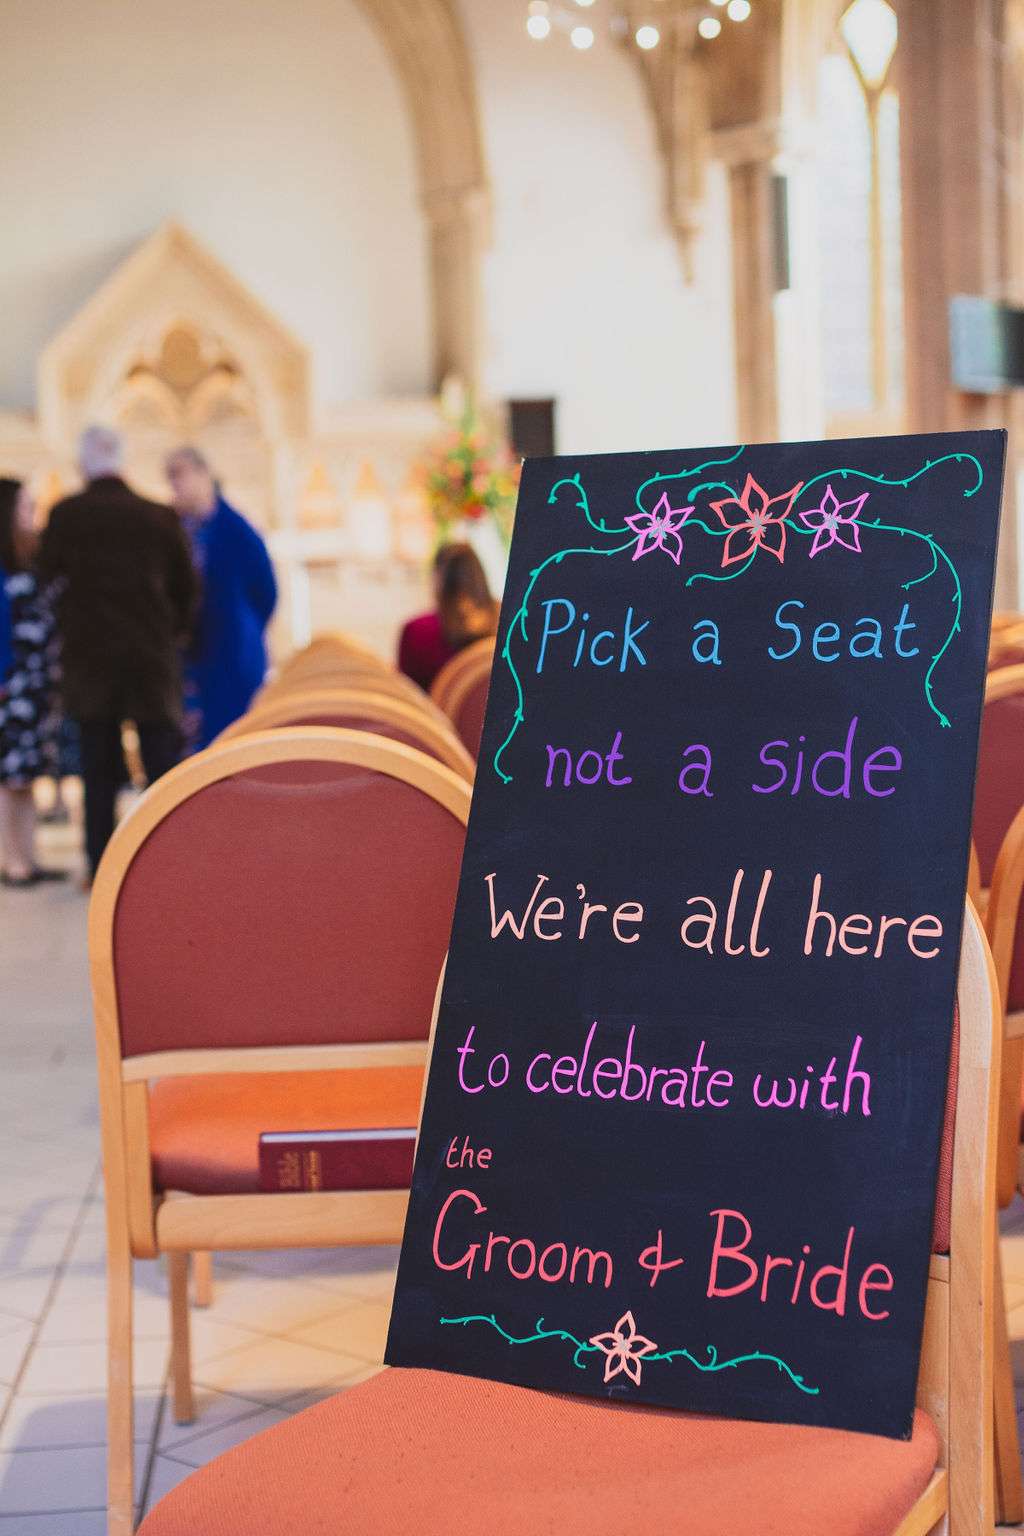 Pick a Seat
not a side
We're all here
to celebrate with
the
Groom & Bride
Bible